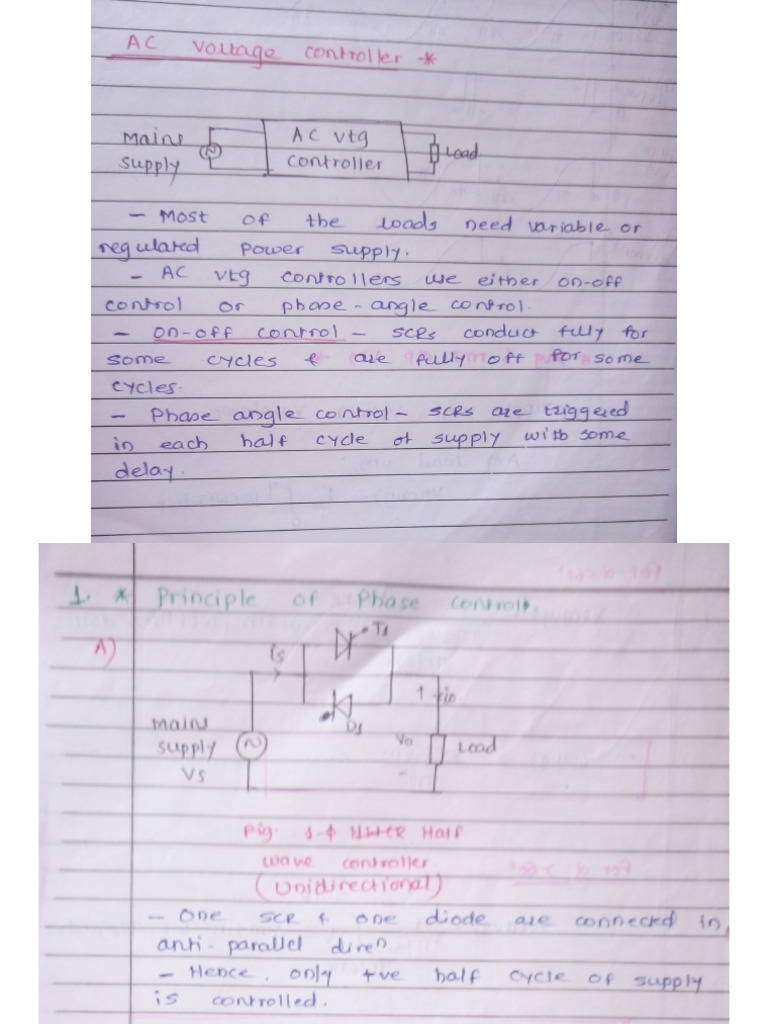 AC Voltage controller -*
Mains supply
AC vtg controller
Load
- Most of the loads need variable or
regulated power supply.
- AC vtg controllers use either on-off
control or phase-angle control.
- on-off control - SCRs conduct fully for
some cycles & are fully off for some
cycles.
- Phase angle control - SCRs are triggered
in each half cycle of supply with some
delay.
1. * Principle of Phase control
A)
is
T1
D1
io
Mains
supply
Vs
Vo
-
Load
Fig. 1-φ Half
wave controller
(Unidirectional)
- One SCR & one diode are connected in
anti-parallel diren.
- Hence, only +ve half cycle of supply
is controlled.